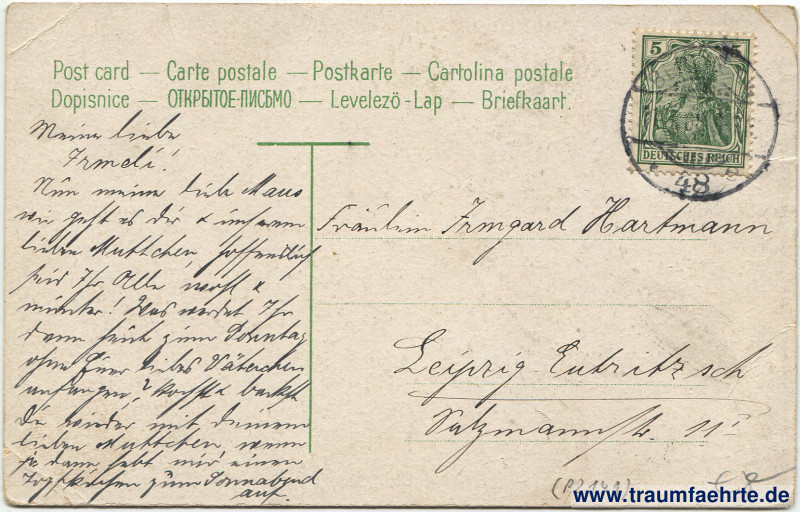 Post card — Carte postale — Postkarte — Cartolina postale
Dopisnice — ОТКРЫТОЕ-ПИСЬМО — Levelezö-Lap — Briefkaart.
5 5
DEUTSCHES REICH
48
Meine liebe
Irmeli!
Nun meine liebe Maus
wie geht es dir & unserem
lieben Muttchen hoffentlich
seid Ihr Alle wohl &
munter! Was werdet Ihr
denn zum Sonntag
ohne Euer liebes Väterchen
anfangen? kochst & backst
Du wieder mit Deinem
lieben Muttchen, wenn
ja dann hebt mir einen
Topfkuchen zum Sonnabend
auf.
Fräulein Irmgard Hartmann
Leipzig-Eutritzsch
Salzmannstr. 11
www.traumfaehrte.de